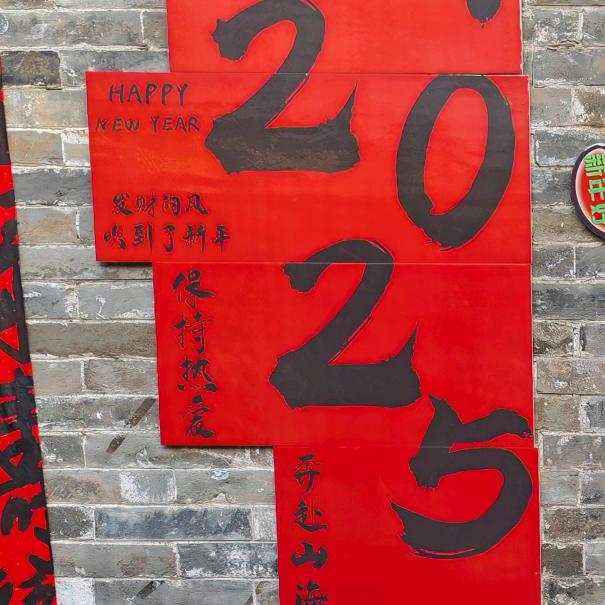 2
HAPPY
NEW YEAR
0
发财的风
吹到了新年
2
保持热爱
5
奔赴山海
新年好